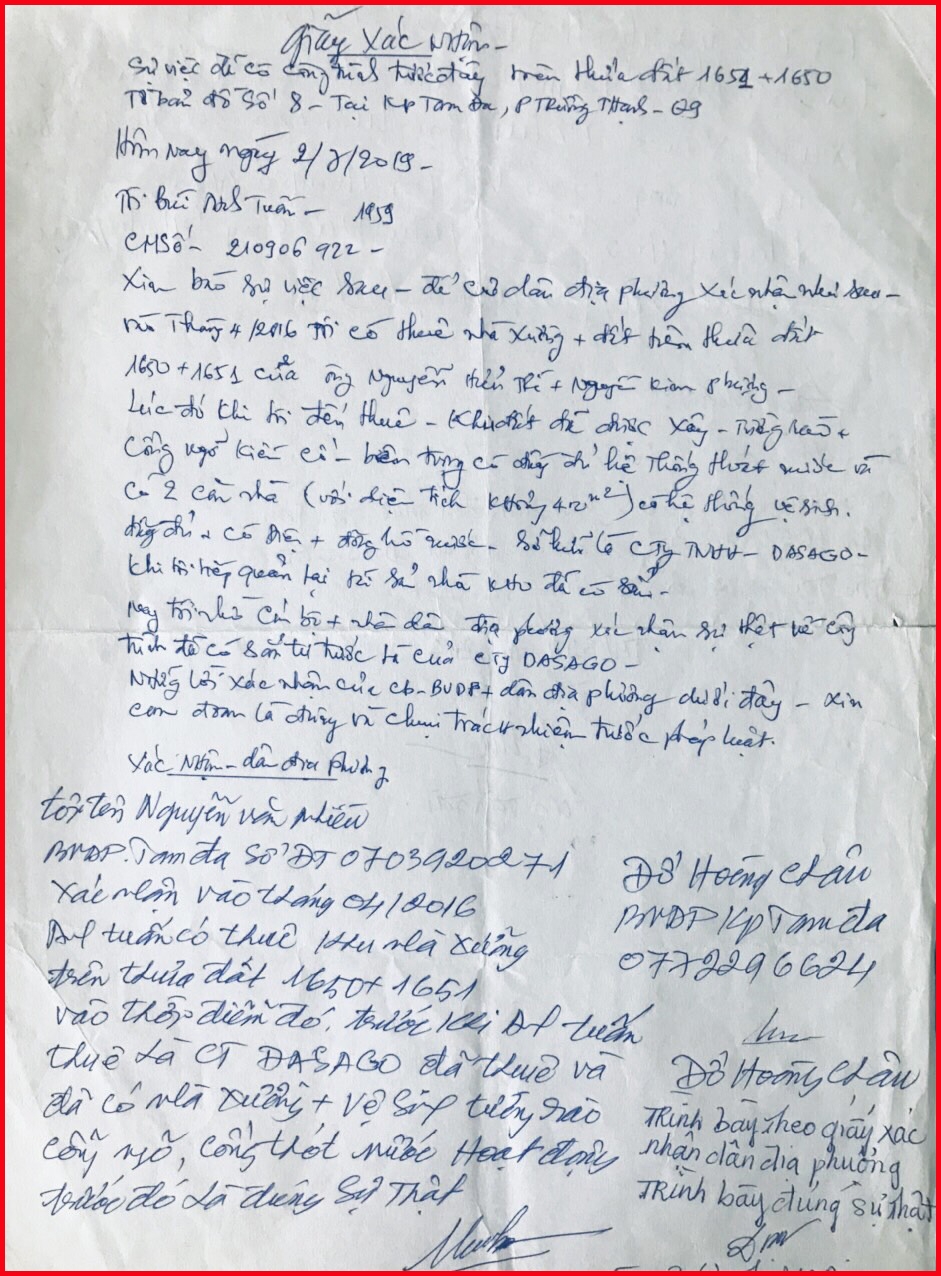 Giấy Xác Nhận -
Sự việc đã có công trình trước đây trên thửa đất 1651 + 1650
Tờ bản đồ số 8 - Tại KP Tam Đa, P Trường Thạnh - Q9
Hôm nay ngày 2/7/2019 -
Tôi Bùi Anh Tuấn - 1959
CMSố - 210906922 -
Xin báo sự việc sau - để cư dân địa phương xác nhận như sau -
vào Tháng 4/2016 tôi có thuê nhà xưởng + đất trên thửa đất
1650 + 1651 của ông Nguyễn + Nguyễn Kim Phượng -
Lúc đó khi tôi đến thuê - Khu đất đã được xây - Tường rào +
Cổng ngõ kiên cố - bên trong có đầy đủ hệ thống thoát nước và
có 2 căn nhà (với diện tích khoảng m²) có hệ thống vệ sinh.
đầy đủ + có Điện + đồng hồ nước - là CTy TNHH - DASAGO -
Khi tôi tiếp quản lại nhà kho đã có sẵn -
Nay tôi nhờ cán bộ + nhân dân địa phương xác nhận sự thật về công
trình đã có sẵn từ trước là của CTy DASAGO -
Những lời xác nhận của cb - BVDP + dân địa phương dưới đây - xin
cam đoan là đúng và chịu trách nhiệm trước pháp luật.
Xác Nhận - dân địa phương
tôi tên Nguyễn văn Nhiêu
BVDP. Tam đa Số ĐT 0703920271
Xác nhận vào tháng 04/2016
A tuấn có thuê khu nhà xưởng
trên thửa đất 1650 + 1651
vào thời điểm đó. trước khi A tuấn
thuê là CT DASAGO đã thuê và
đã có nhà xưởng + vệ sinh tường rào
cổng ngõ, cống thót nước Hoạt động
trước đó là đúng sự Thật
Đỗ Hoàng Châu
BVDP Kp Tam đa
0772296624
Đỗ Hoàng Châu
Trình bày theo giấy xác
nhận dân địa phương
Trình bày đúng sự thật